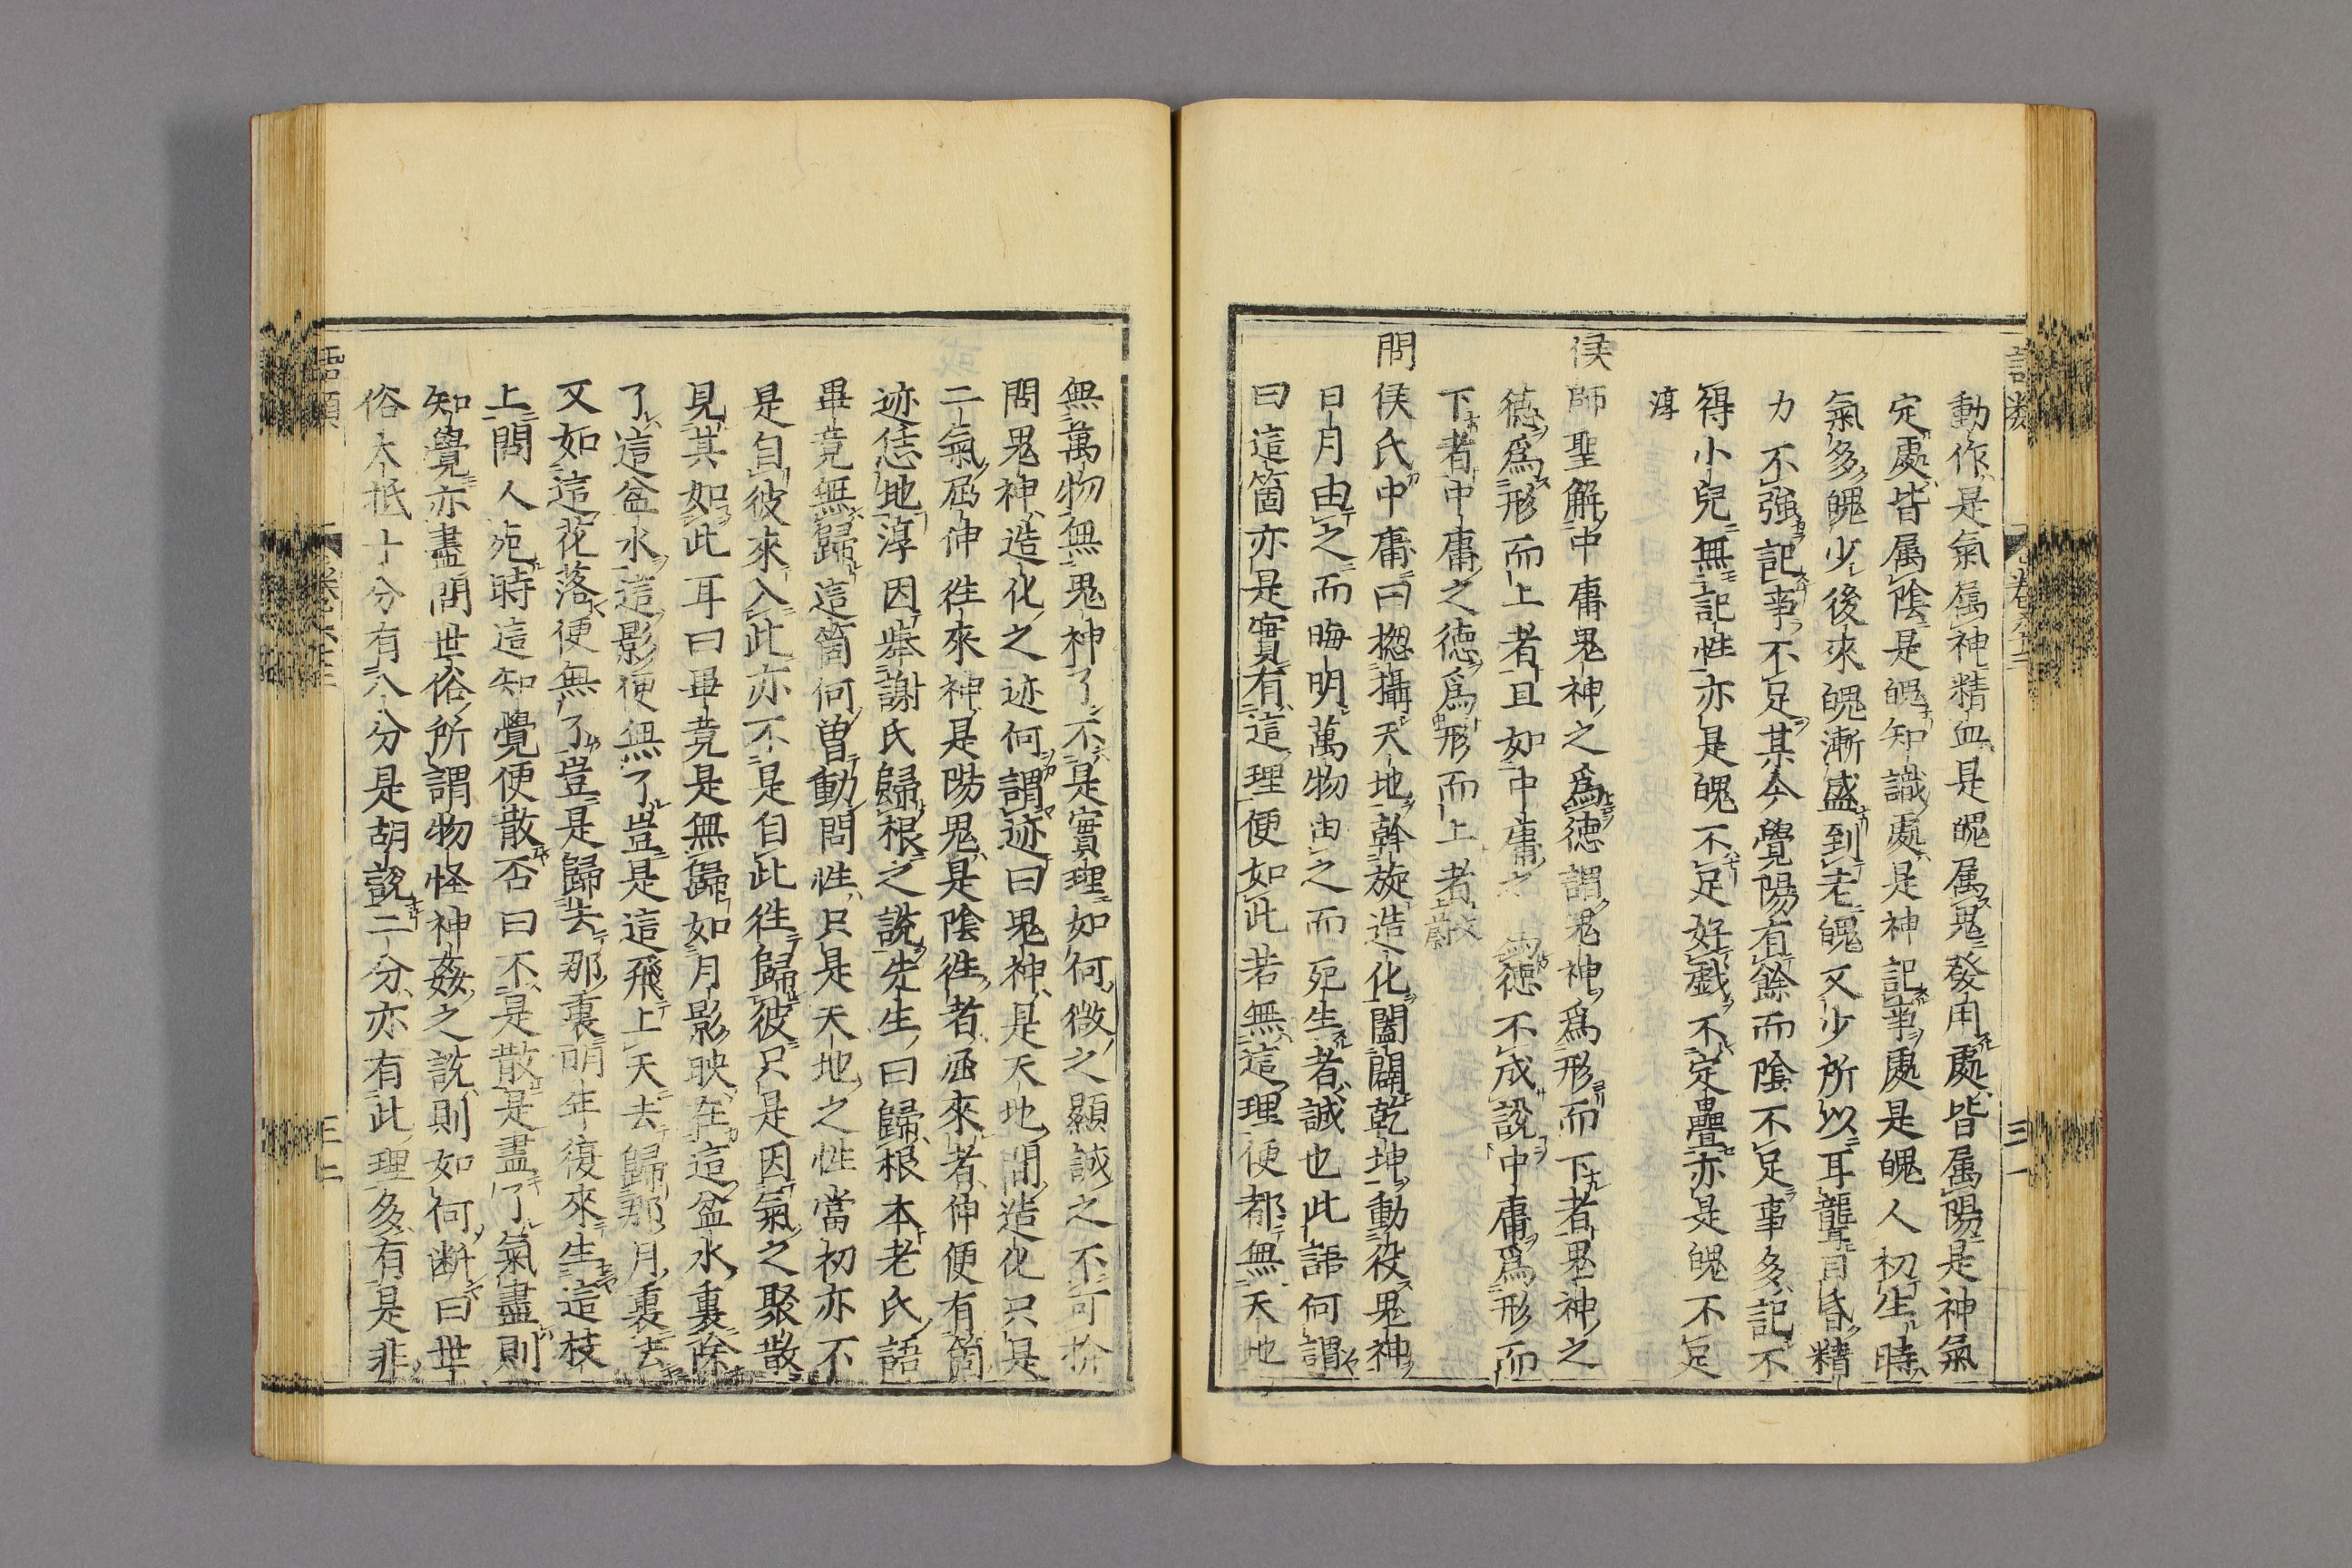 動作是氣属神精血是魄属鬼發用處皆属陽是神氣
定處皆属陰是魄知識處是神記事處是魄人初生時
氣多魄少後來魄漸盛到老魄又少所以耳聾目昏精
力不強記事不足某今覺陽有餘而陰不足事多記不
得小兒無記性亦是魄不足好戯不定疊亦是魄不足
淳
侯師聖解中庸鬼神之爲徳謂鬼神爲形而下者鬼神之
徳爲形而上者且如中庸之爲徳不成說中庸爲形而
下者中庸之徳爲形而上者
問侯氏中庸曰揔攝天地斡旋造化闔闢乾坤動役鬼神
日月由之而晦明萬物由之而死生者誠也此語何謂
曰這箇亦是實有這理便如此若無這理便都無天地
無萬物無鬼神了不是實理如何微之顯誠之不可揜
問鬼神造化之迹何謂迹曰鬼神是天地間造化只是
二氣屈伸往來神是陽鬼是陰往者屈來者伸便有箇
迹恁地淳因舉謝氏歸根之說先生曰歸根本老氏語
畢竟無歸這箇何曽動問性只是天地之性當初亦不
是自彼來入此亦不是自此往歸彼只是因氣之聚散
見其如此耳曰畢竟是無歸如月影映在這盆水裏除
了這盆水這影便無了豈是這飛上天去歸那月裏去
又如這花落便無了豈是歸去那裏明年復來生這枝
上問人死時這知覺便散否曰不是散是盡了氣盡則
知覺亦盡問世俗所謂物怪神姦之說則如何断曰世
俗大抵十分有八分是胡說二分亦有此理多有是非